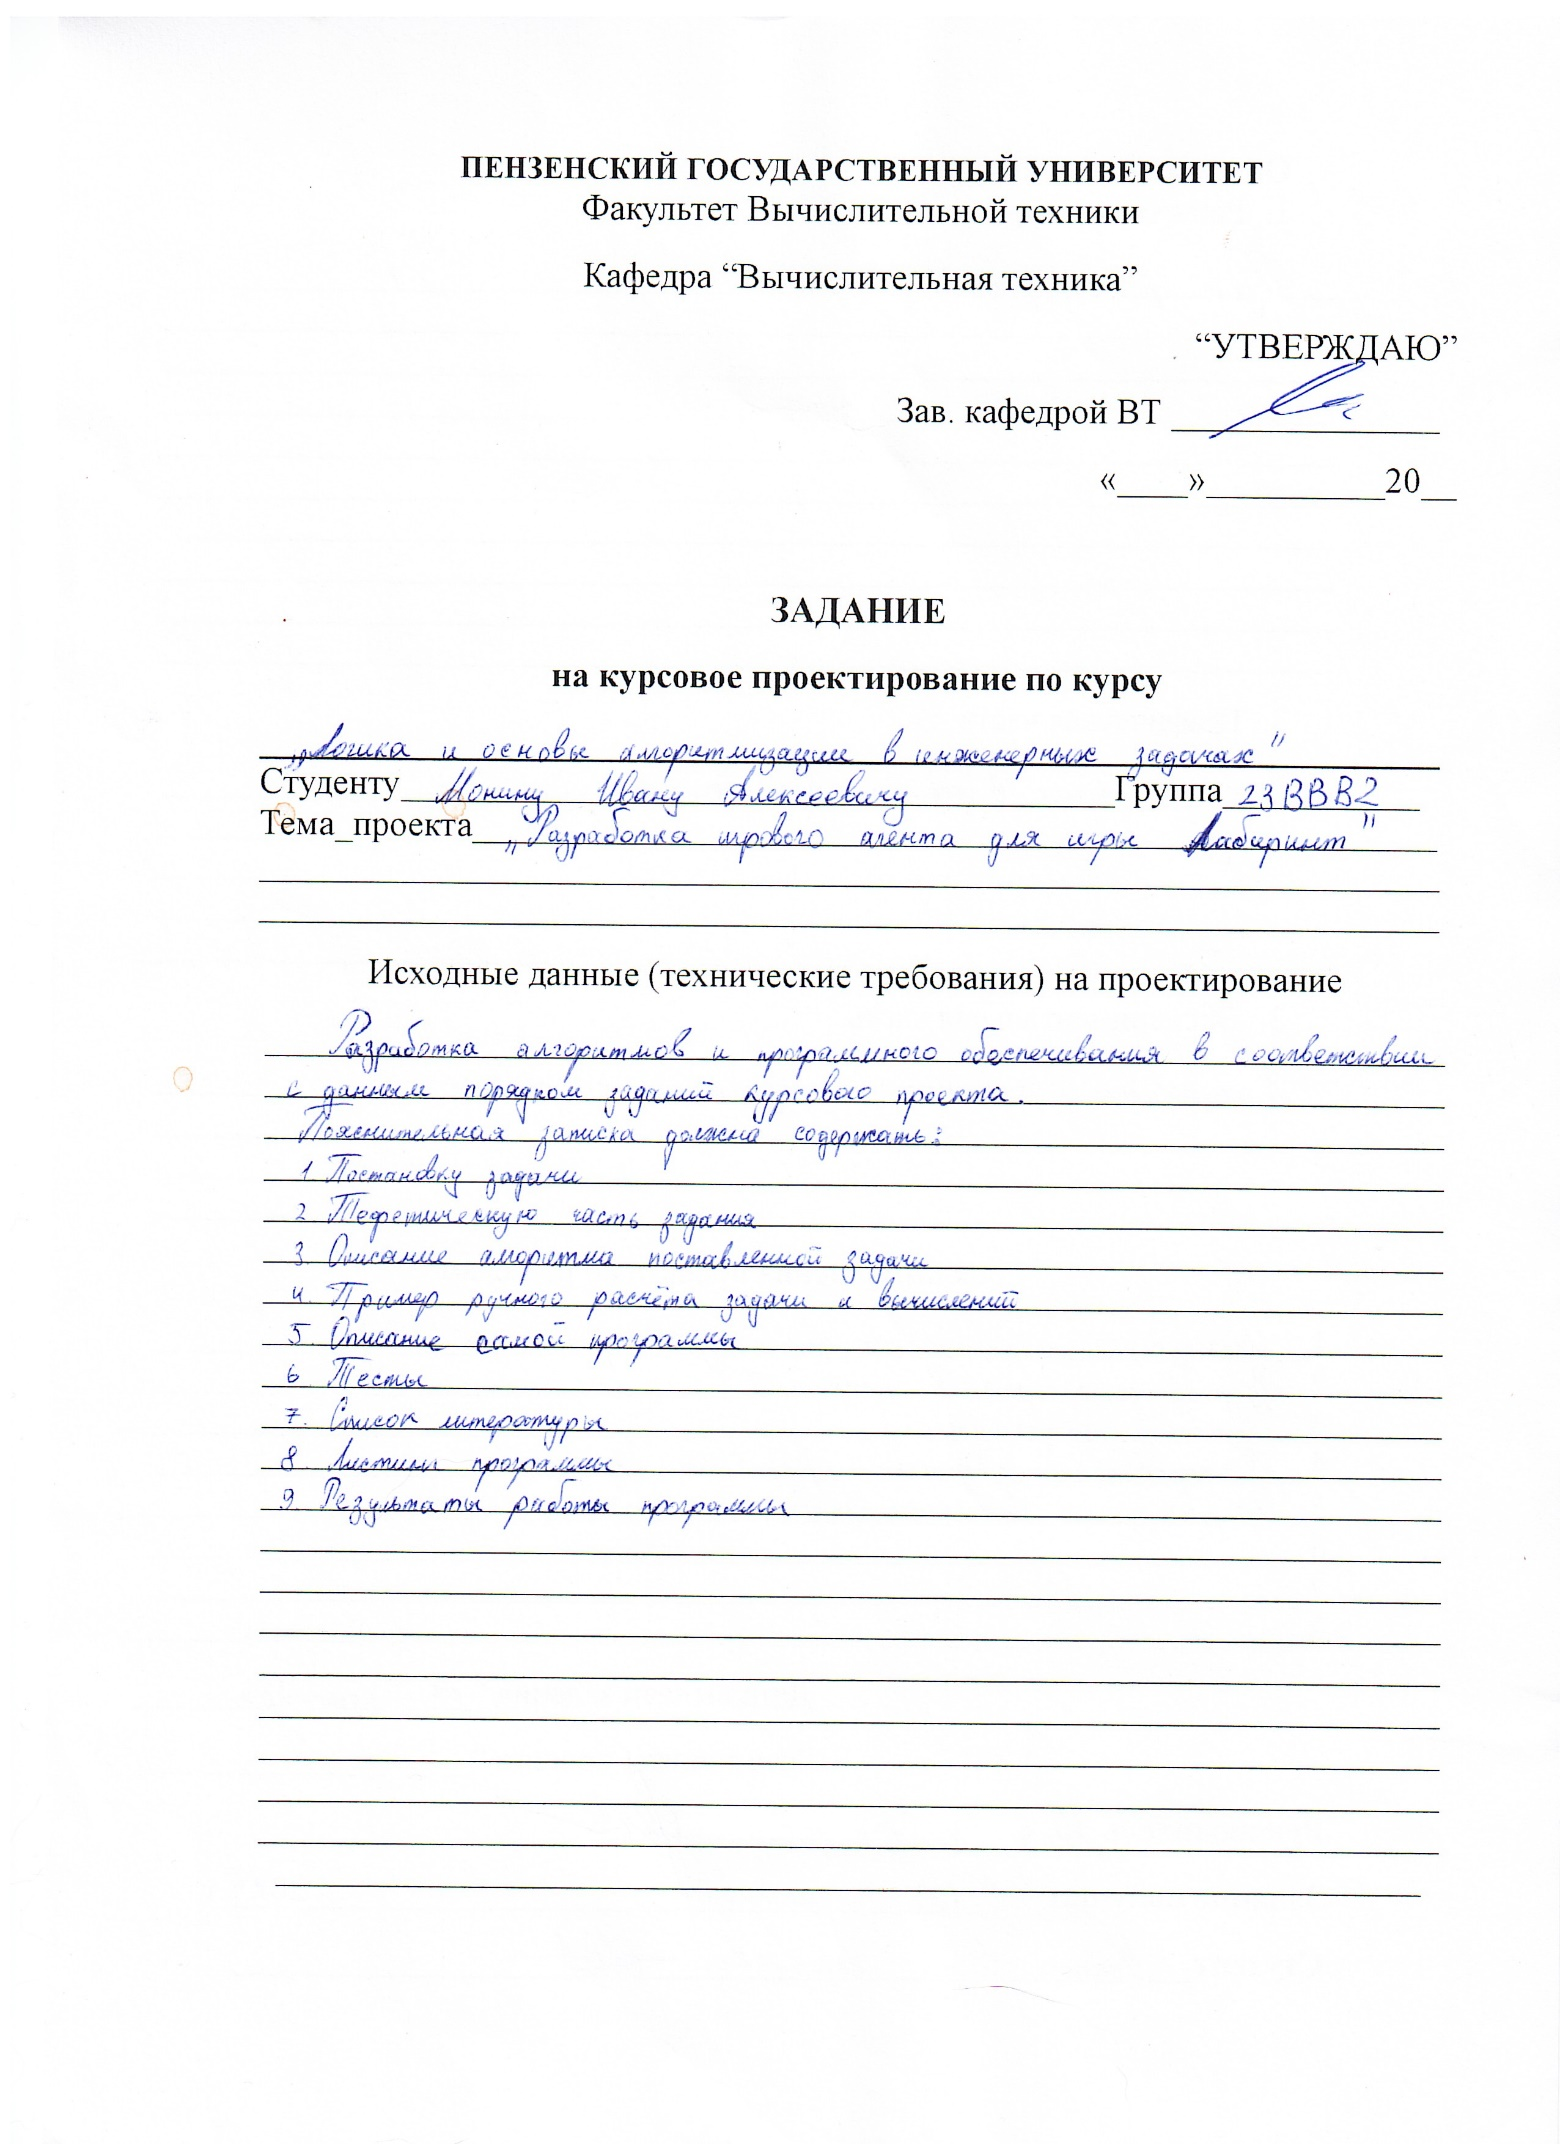 ПЕНЗЕНСКИЙ ГОСУДАРСТВЕННЫЙ УНИВЕРСИТЕТ
Факультет Вычислительной техники
Кафедра “Вычислительная техника”
“УТВЕРЖДАЮ”
Зав. кафедрой ВТ _______________
«____»__________20__
ЗАДАНИЕ
на курсовое проектирование по курсу
„Логика и основы алгоритмизации в инженерных задачах"
Студенту Монину Ивану Алексеевичу Группа 23ВВВ2
Тема_проекта „Разработка игрового агента для игры Лабиринт"
Исходные данные (технические требования) на проектирование
Разработка алгоритмов и программного обеспечивания в соответствии
с данным порядком заданий курсового проекта.
Пояснительная записка должна содержать:
1. Постановку задачи
2. Теоретическую часть задания
3. Описание алгоритма поставленной задачи
4. Пример ручного расчёта задачи и вычислений
5. Описание самой программы
6 Тесты
7. Список литературы
8 Листинг программы
9. Результаты работы программы